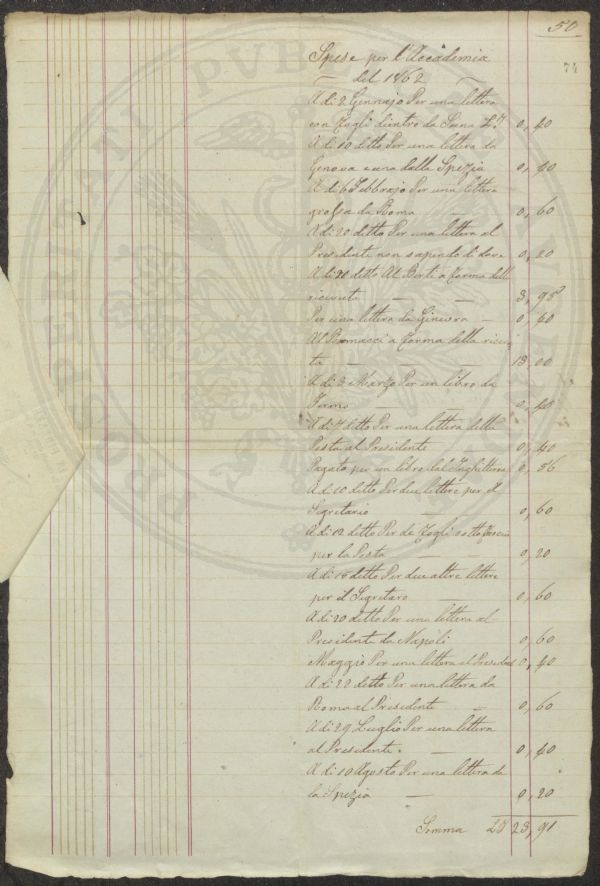 50
74
Spese per l'Accademia
del 1862
A di 2 Gennajo Per una lettera
con Fogli dientro da Siena L.I 0,40
A di 10 detto Per una lettera da
Genova e una dalla Spezia 0,40
A di 6 Febbrajo Per una lettera
grossa da Roma 0,60
A di 20 detto Per una lettera al
Presidente non sapendo di dove 0,20
A di 21 detto Al Berti a Forma dell
ricevuta — — 3,95
Per una lettera da Ginevra — 0,40
Al a Forma della ricevu
ta — — 13,00
A di 3 Marzo Per un libro da
Fermo — 0,40
A di 7 detto Per una lettera dell
Posta al Presidente — 0,40
Pagato per un libro dal Inghilterra 0,56
A di 10 detto Per due lettere per il
Segretario — 0,60
A di 12 detto Per de Fogli sotto Fascia
per la Posta — 0,20
A di 15 detto Per due altre lettere
per il Segretaro — 0,60
A di 20 detto Per una lettera al
Presidente da Napoli 0,60
Maggio Per una lettera al Presidente 0,40
A di 22 detto Per una lettera da
Roma al Presidente — 0,60
A di 29 Luglio Per una lettera
al Presidente. — 0,40
A di 10 Agosto Per una lettera da
la Spezia — 0,20
Somma LI 23,91